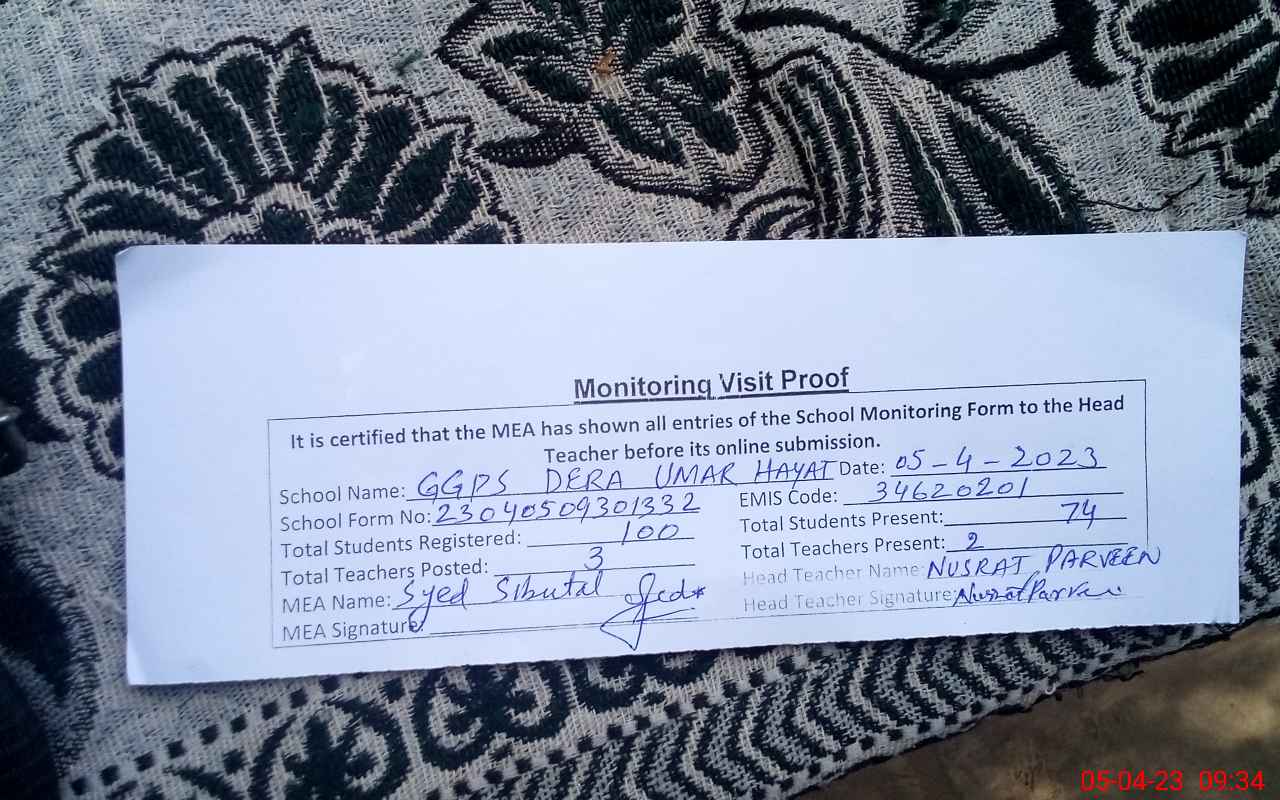 Monitoring Visit Proof
It is certified that the MEA has shown all entries of the School Monitoring Form to the Head
Teacher before its online submission.
School Name: GGPS DERA UMAR HAYAT Date: 05-4-2023
School Form No: 23040509301332 EMIS Code: 34620201
Total Students Registered: 100 Total Students Present: 74
Total Teachers Posted: 3 Total Teachers Present: 2
MEA Name: Syed Sibutal Head Teacher Name: NUSRAT PARVEEN
MEA Signature: Head Teacher Signature: Nusrat Parveen
05-04-23 09:34